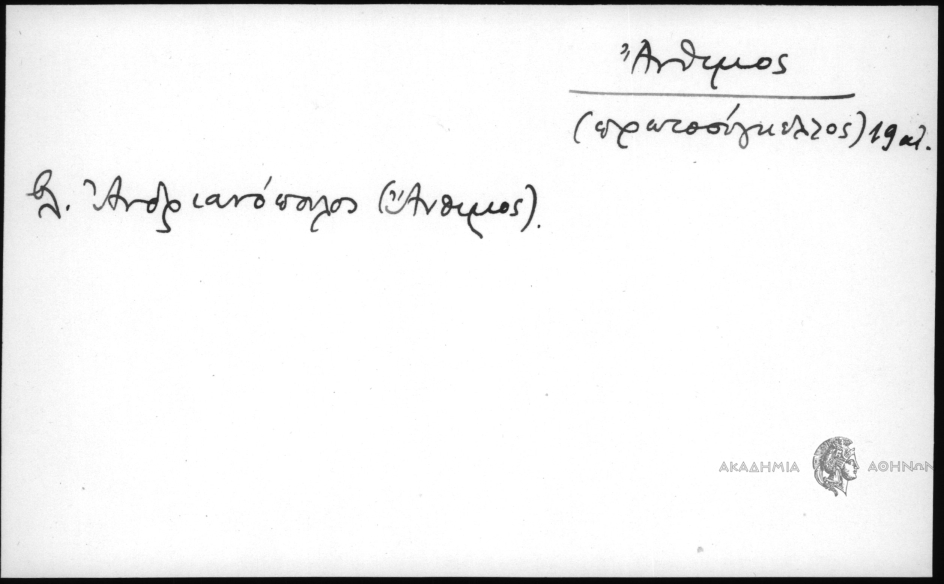 Ἄνθιμος
(πρωτοσύγκελλος) 19 αἰ.
βλ. Ἀνδριανόπουλος (Ἄνθιμος).
ΑΚΑΔΗΜΙΑ ΑΘΗΝΩΝ